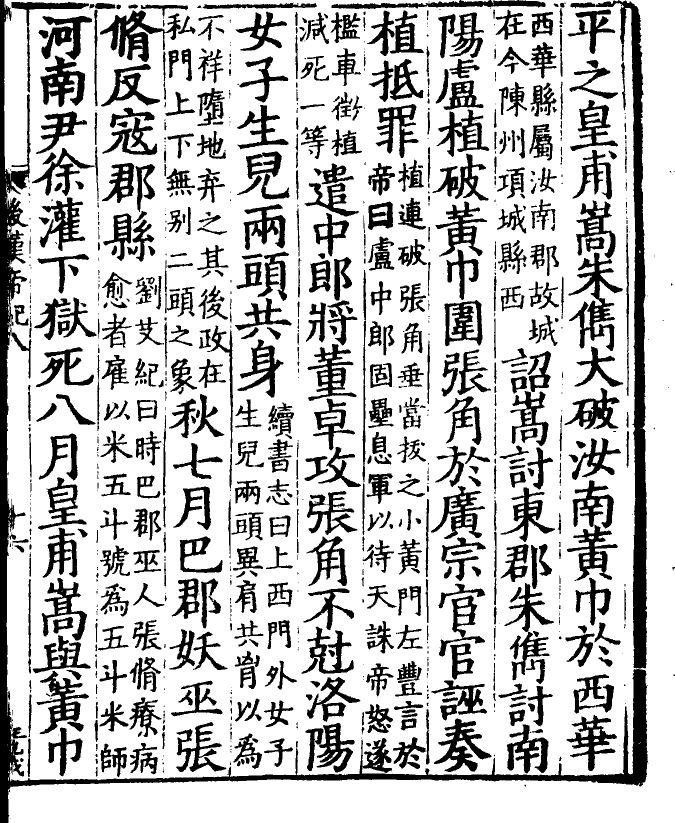 平之皇甫嵩朱儁大破汝南黃巾於西華
西華縣屬汝南郡故城
在今陳州項城縣西
詔嵩討東郡朱儁討南
陽盧植破黃巾圍張角於廣宗宦官誣奏
植抵罪
植連破張角垂當拔之小黃門左豐言於
帝曰盧中郎固壘息軍以待天誅帝怒遂
檻車徵植
減死一等
遣中郎將董卓攻張角不尅洛陽
女子生兒兩頭共身
續書志曰上西門外女子
生兒兩頭異肩共胷以爲
不祥墮地弃之其後政在
私門上下無别二頭之象
秋七月巴郡妖巫張
脩反寇郡縣
劉艾紀曰時巴郡巫人張脩療病
愈者雇以米五斗號爲五斗米師
河南尹徐灌下獄死八月皇甫嵩與黃巾
後漢帝紀八
十六